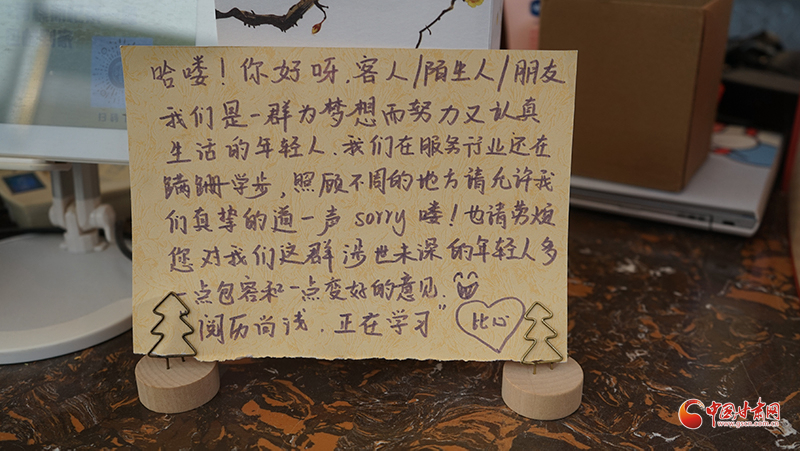 哈喽！你好呀.客人/陌生人/朋友
我们是一群为梦想而努力又认真
生活的年轻人.我们在服务行业还在
蹒跚学步，照顾不周的地方请允许我
们真挚的道一声sorry喽！也请劳烦
您对我们这群涉世未深的年轻人多
一点包容和一点变好的意见.
阅历尚浅.正在学习”
比心
中国甘肃网
www.gscn.com.cn